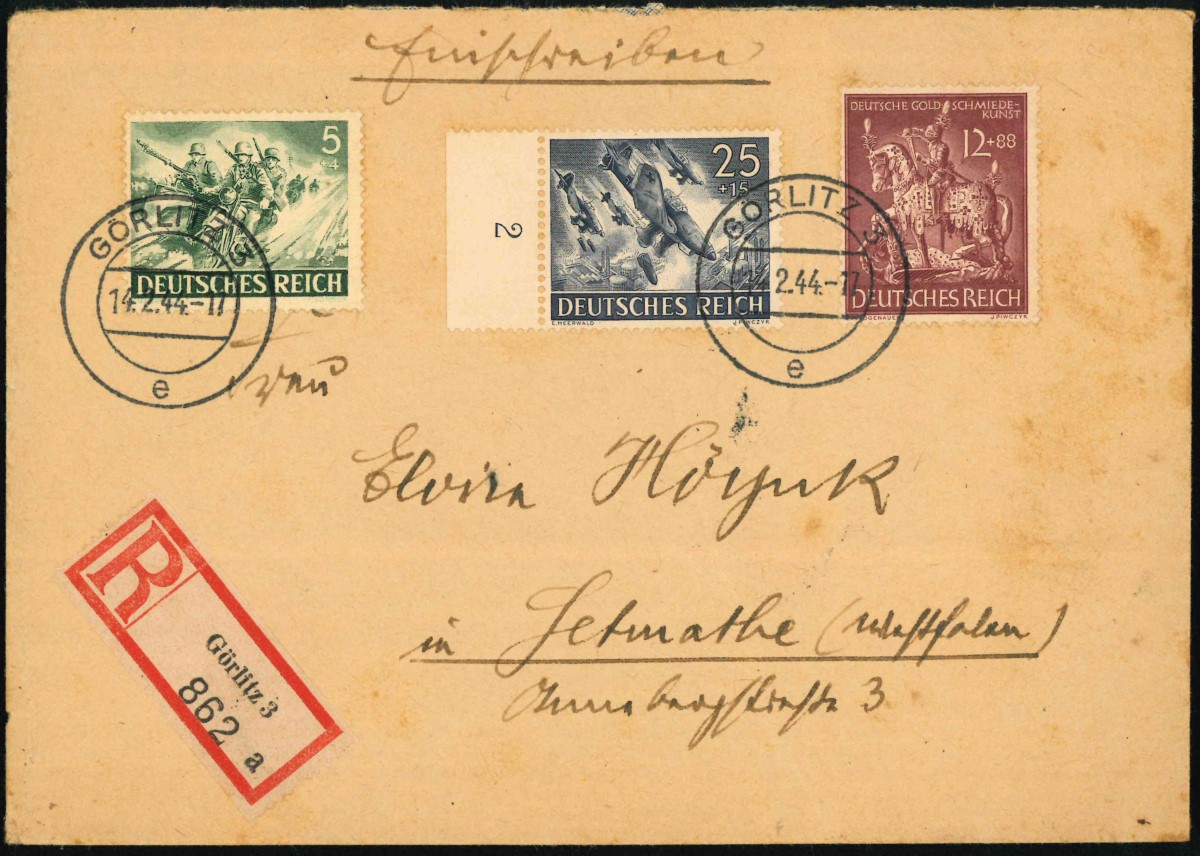 Einschreiben
5
+4
DEUTSCHES REICH
2
25
+15
DEUTSCHES REICH
E. MEERWALD J. PIWCZYK
DEUTSCHE GOLD SCHMIEDE-
KUNST
12+88
DEUTSCHES REICH
J. PIWCZYK
GÖRLITZ 3
14.2.44.-17
e
GÖRLITZ 3
14.2.44.-17
e
Frau
Elvira
in Letmathe (Westfalen)
Annabergstraße 3
R
Görlitz 3
862 a